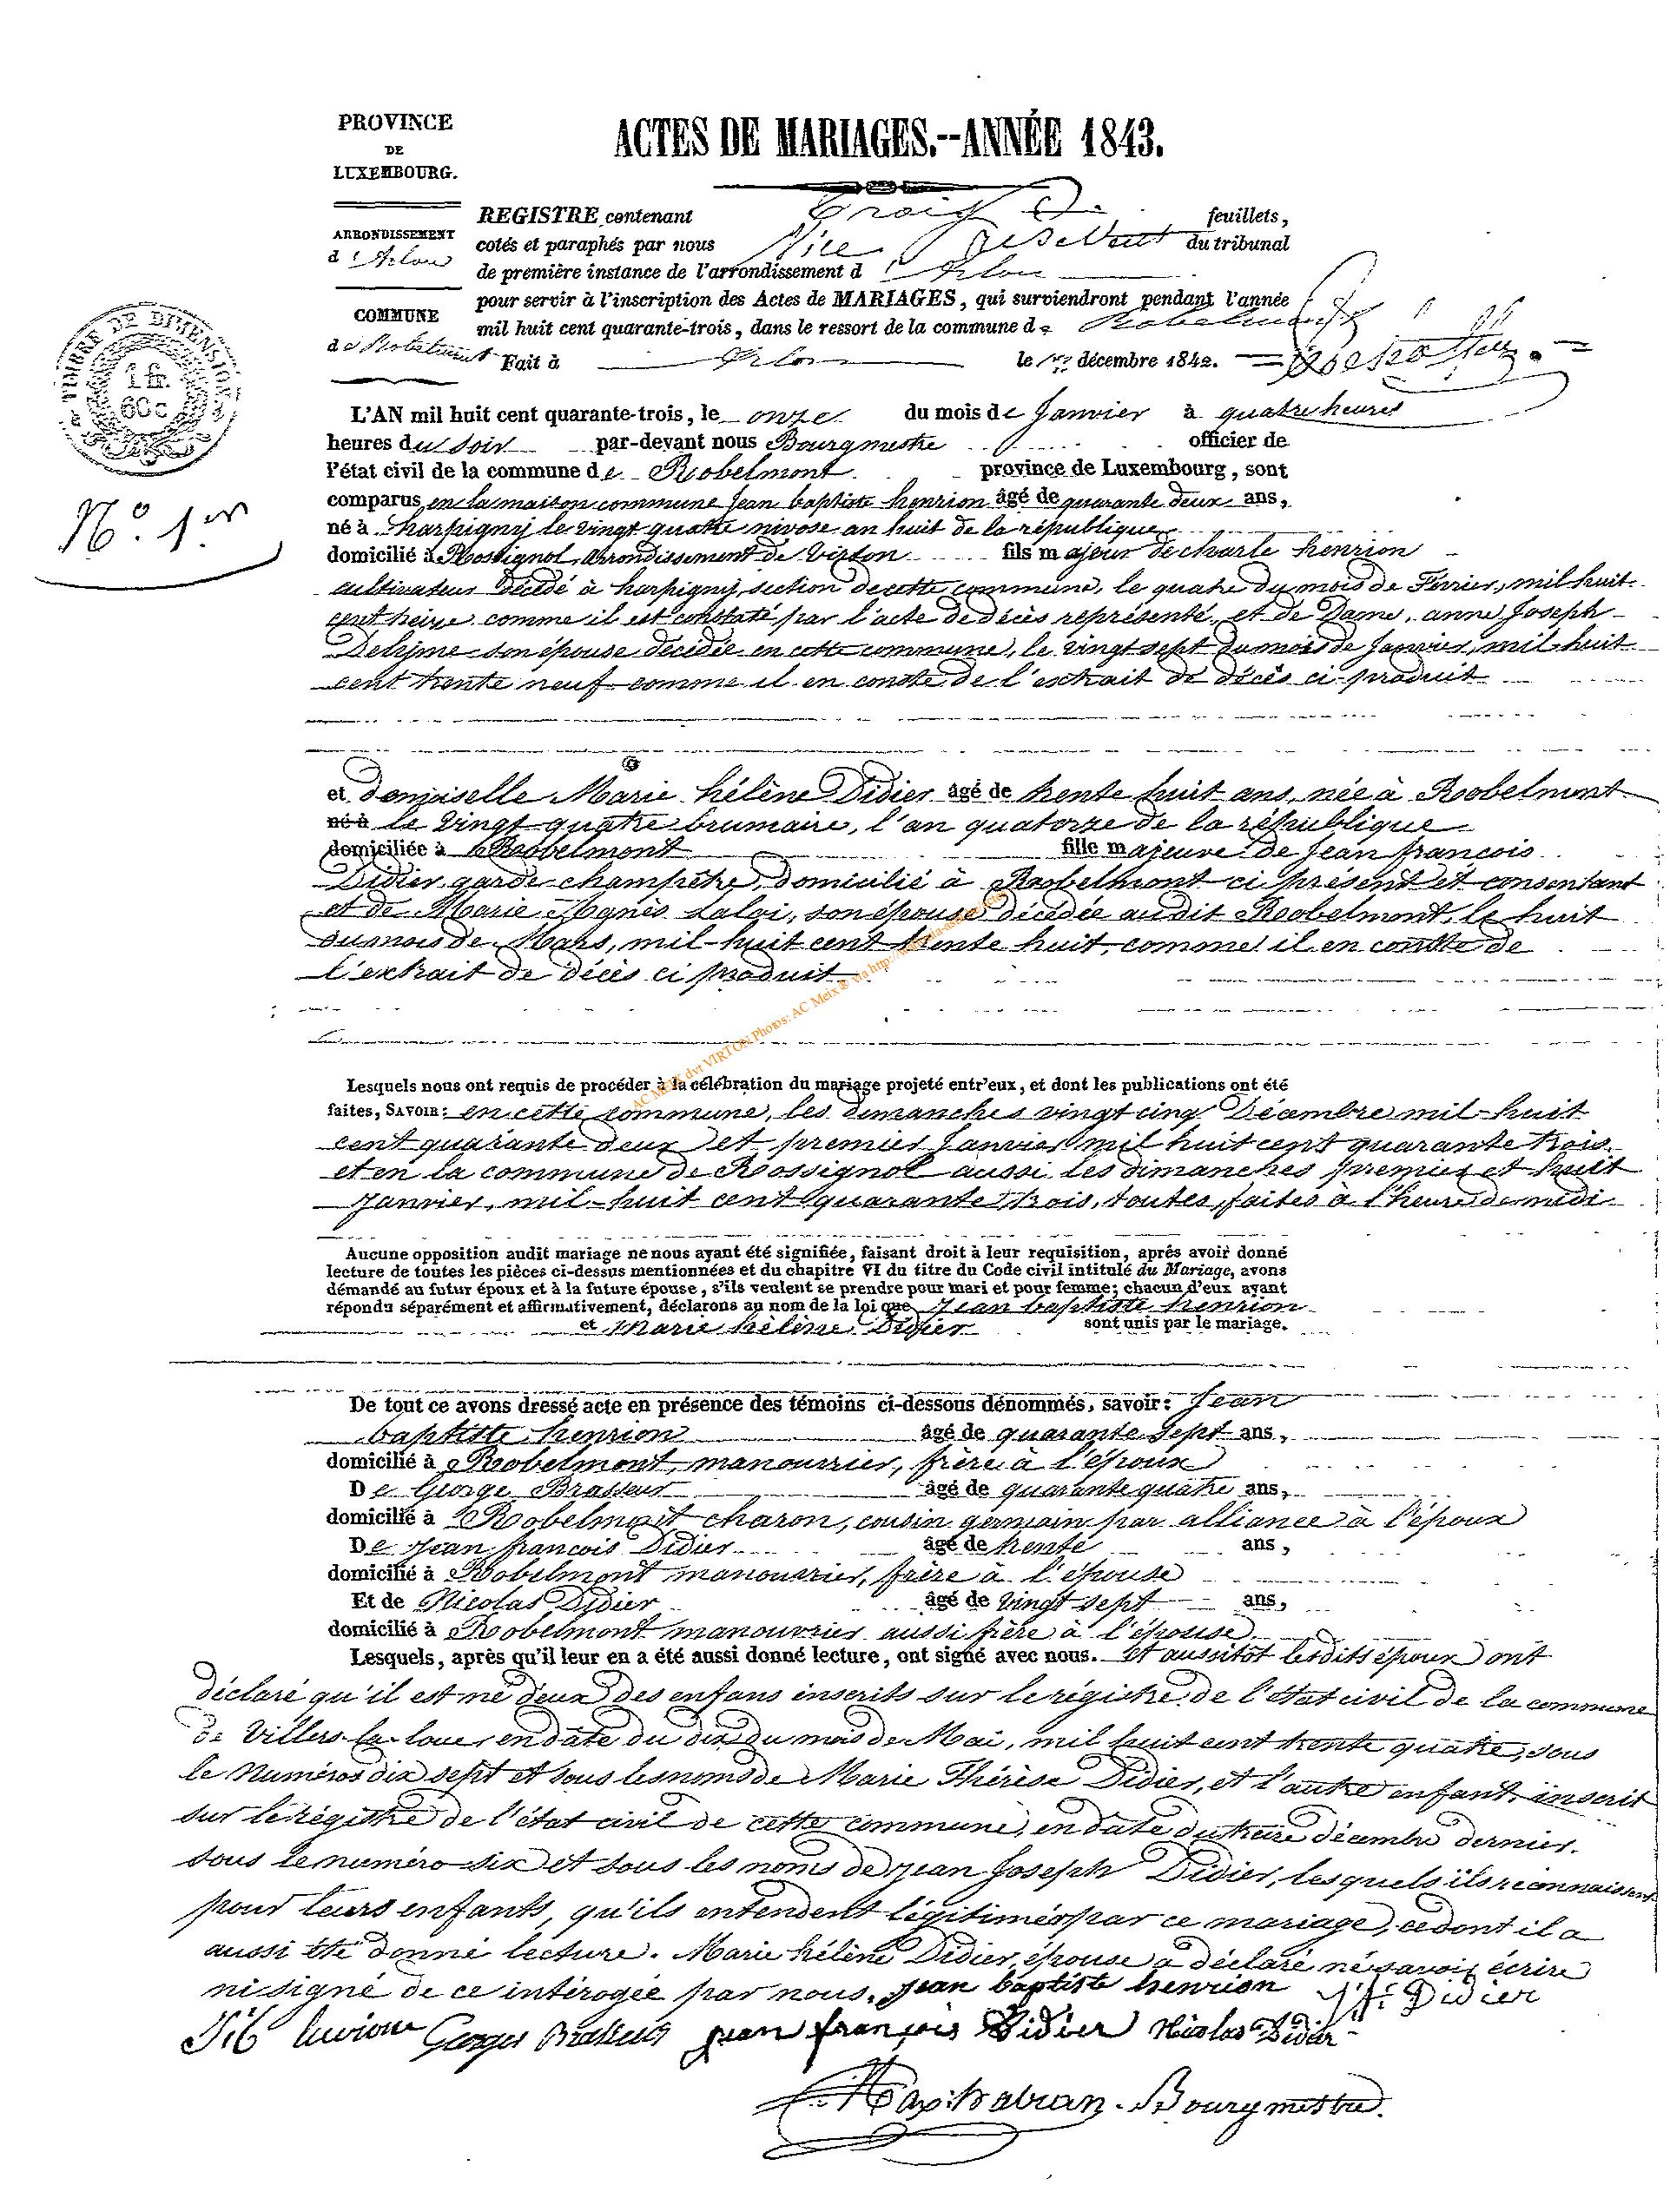 PROVINCE
DE
LUXEMBOURG.
ACTES DE MARIAGES.--ANNÉE 1843.
ARRONDISSEMENT
d'Arlon
COMMUNE
de Robelmont
REGISTRE contenant trois feuillets,
cotés et paraphés par nous Vice Président du tribunal
de première instance de l'arrondissement d'Arlon
pour servir à l'inscription des Actes de MARIAGES, qui surviendront pendant l'année
mil huit cent quarante-trois, dans le ressort de la commune de Robelmont
Fait à Arlon le décembre 1842.
TIMBRE DE DIMENSION
1 fr.
60 c
N.° 1.er
L'AN mil huit cent quarante-trois, le onze du mois de Janvier à quatre heures
heures du soir par-devant nous Bourgmestre officier de
l'état civil de la commune de Robelmont province de Luxembourg, sont
comparus en la maison commune Jean baptiste henrion âgé de quarante deux ans,
né à harpigny le vingt quatre nivose an huit de la république
domicilié à Rossignol, Arrondissement de Virton fils majeur de charle henrion
cultivateur décédé à harpigny, section de cette commune, le quatre du mois de Février, mil huit
cent treize comme il est constaté par l'acte de décès représenté, et de Dame anne Joseph
son épouse décédée en cette commune, le vingt sept du mois de Janvier, mil huit
cent trente neuf comme il en conste de l'extrait de décès ci produit
et demoiselle Marie hélène Didier âgé de trente huit ans, née à Robelmont
né à le vingt quatre brumaire, l'an quatorze de la république
domiciliée à Robelmont fille majeure de Jean françois
Didier garde champêtre, domicilié à Robelmont ci présent et consentant
et de Marie Agnès Laloi, son épouse décédée audit Robelmont, le huit
du mois de Mars, mil-huit cent trente huit, comme il en conste de
l'extrait de décès ci produit
AC MEIX dvt VIRTON Photos: AC Meix © via http://
Lesquels nous ont requis de procéder à la célébration du mariage projeté entr'eux, et dont les publications ont été
faites, SAVOIR: en cette commune, les dimanches vingt cinq Décembre mil-huit
cent quarante deux et premier Janvier mil huit cent quarante trois
et en la commune de Rossignol aussi les dimanches premier et huit
Janvier, mil-huit cent quarante trois, toutes faites à l'heure de midi
Aucune opposition audit mariage ne nous ayant été signifiée, faisant droit à leur requisition, après avoir donné
lecture de toutes les pièces ci-dessus mentionnées et du chapitre VI du titre du Code civil intitulé du Mariage, avons
démandé au futur époux et à la future épouse, s'ils veulent se prendre pour mari et pour femme; chacun d'eux ayant
répondu séparément et affirmativement, déclarons au nom de la loi que Jean baptiste henrion
et Marie hélène Didier sont unis par le mariage.
De tout ce avons dressé acte en présence des témoins ci-dessous dénommés, savoir: Jean
baptiste henrion âgé de quarante sept ans,
domicilié à Robelmont, manouvrier, frère à l'époux
De George Brasseur âgé de quarante quatre ans,
domicilié à Robelmont charon, cousin germain par alliance à l'époux
De Jean françois Didier âgé de trente ans,
domicilié à Robelmont manouvrier, frère à l'épouse
Et de Nicolas Didier âgé de vingt sept ans,
domicilié à Robelmont manouvrier aussi frère à l'épouse
Lesquels, après qu'il leur en a été aussi donné lecture, ont signé avec nous. et aussitôt lesdits époux ont
déclaré qu'il est né d'eux des enfans inscrits sur le régistre de l'état civil de la commune
de Villers-la-loue, en date du dix du mois de Mai, mil huit cent trente quatre, sous
le Numéros dix sept et sous les noms de Marie Thérèse Didier, et l'autre enfant, inscrit
sur le régistre de l'état civil de cette commune, en date du treize décembre dernier,
sous le numéro six et sous les noms de Jean Joseph Didier, lesquels ils réconnaissent
pour leurs enfants, qu'ils entendent légitimés par ce mariage, ce dont il a
aussi été donné lecture. Marie hélène Didier, épouse a déclaré né savoir écrire
ni signé de ce intérogée par nous. jean baptiste henrion J f. Didier
henrion Georges Brasseur jean françois Didier Nicolas Didier
Bourgmestre.